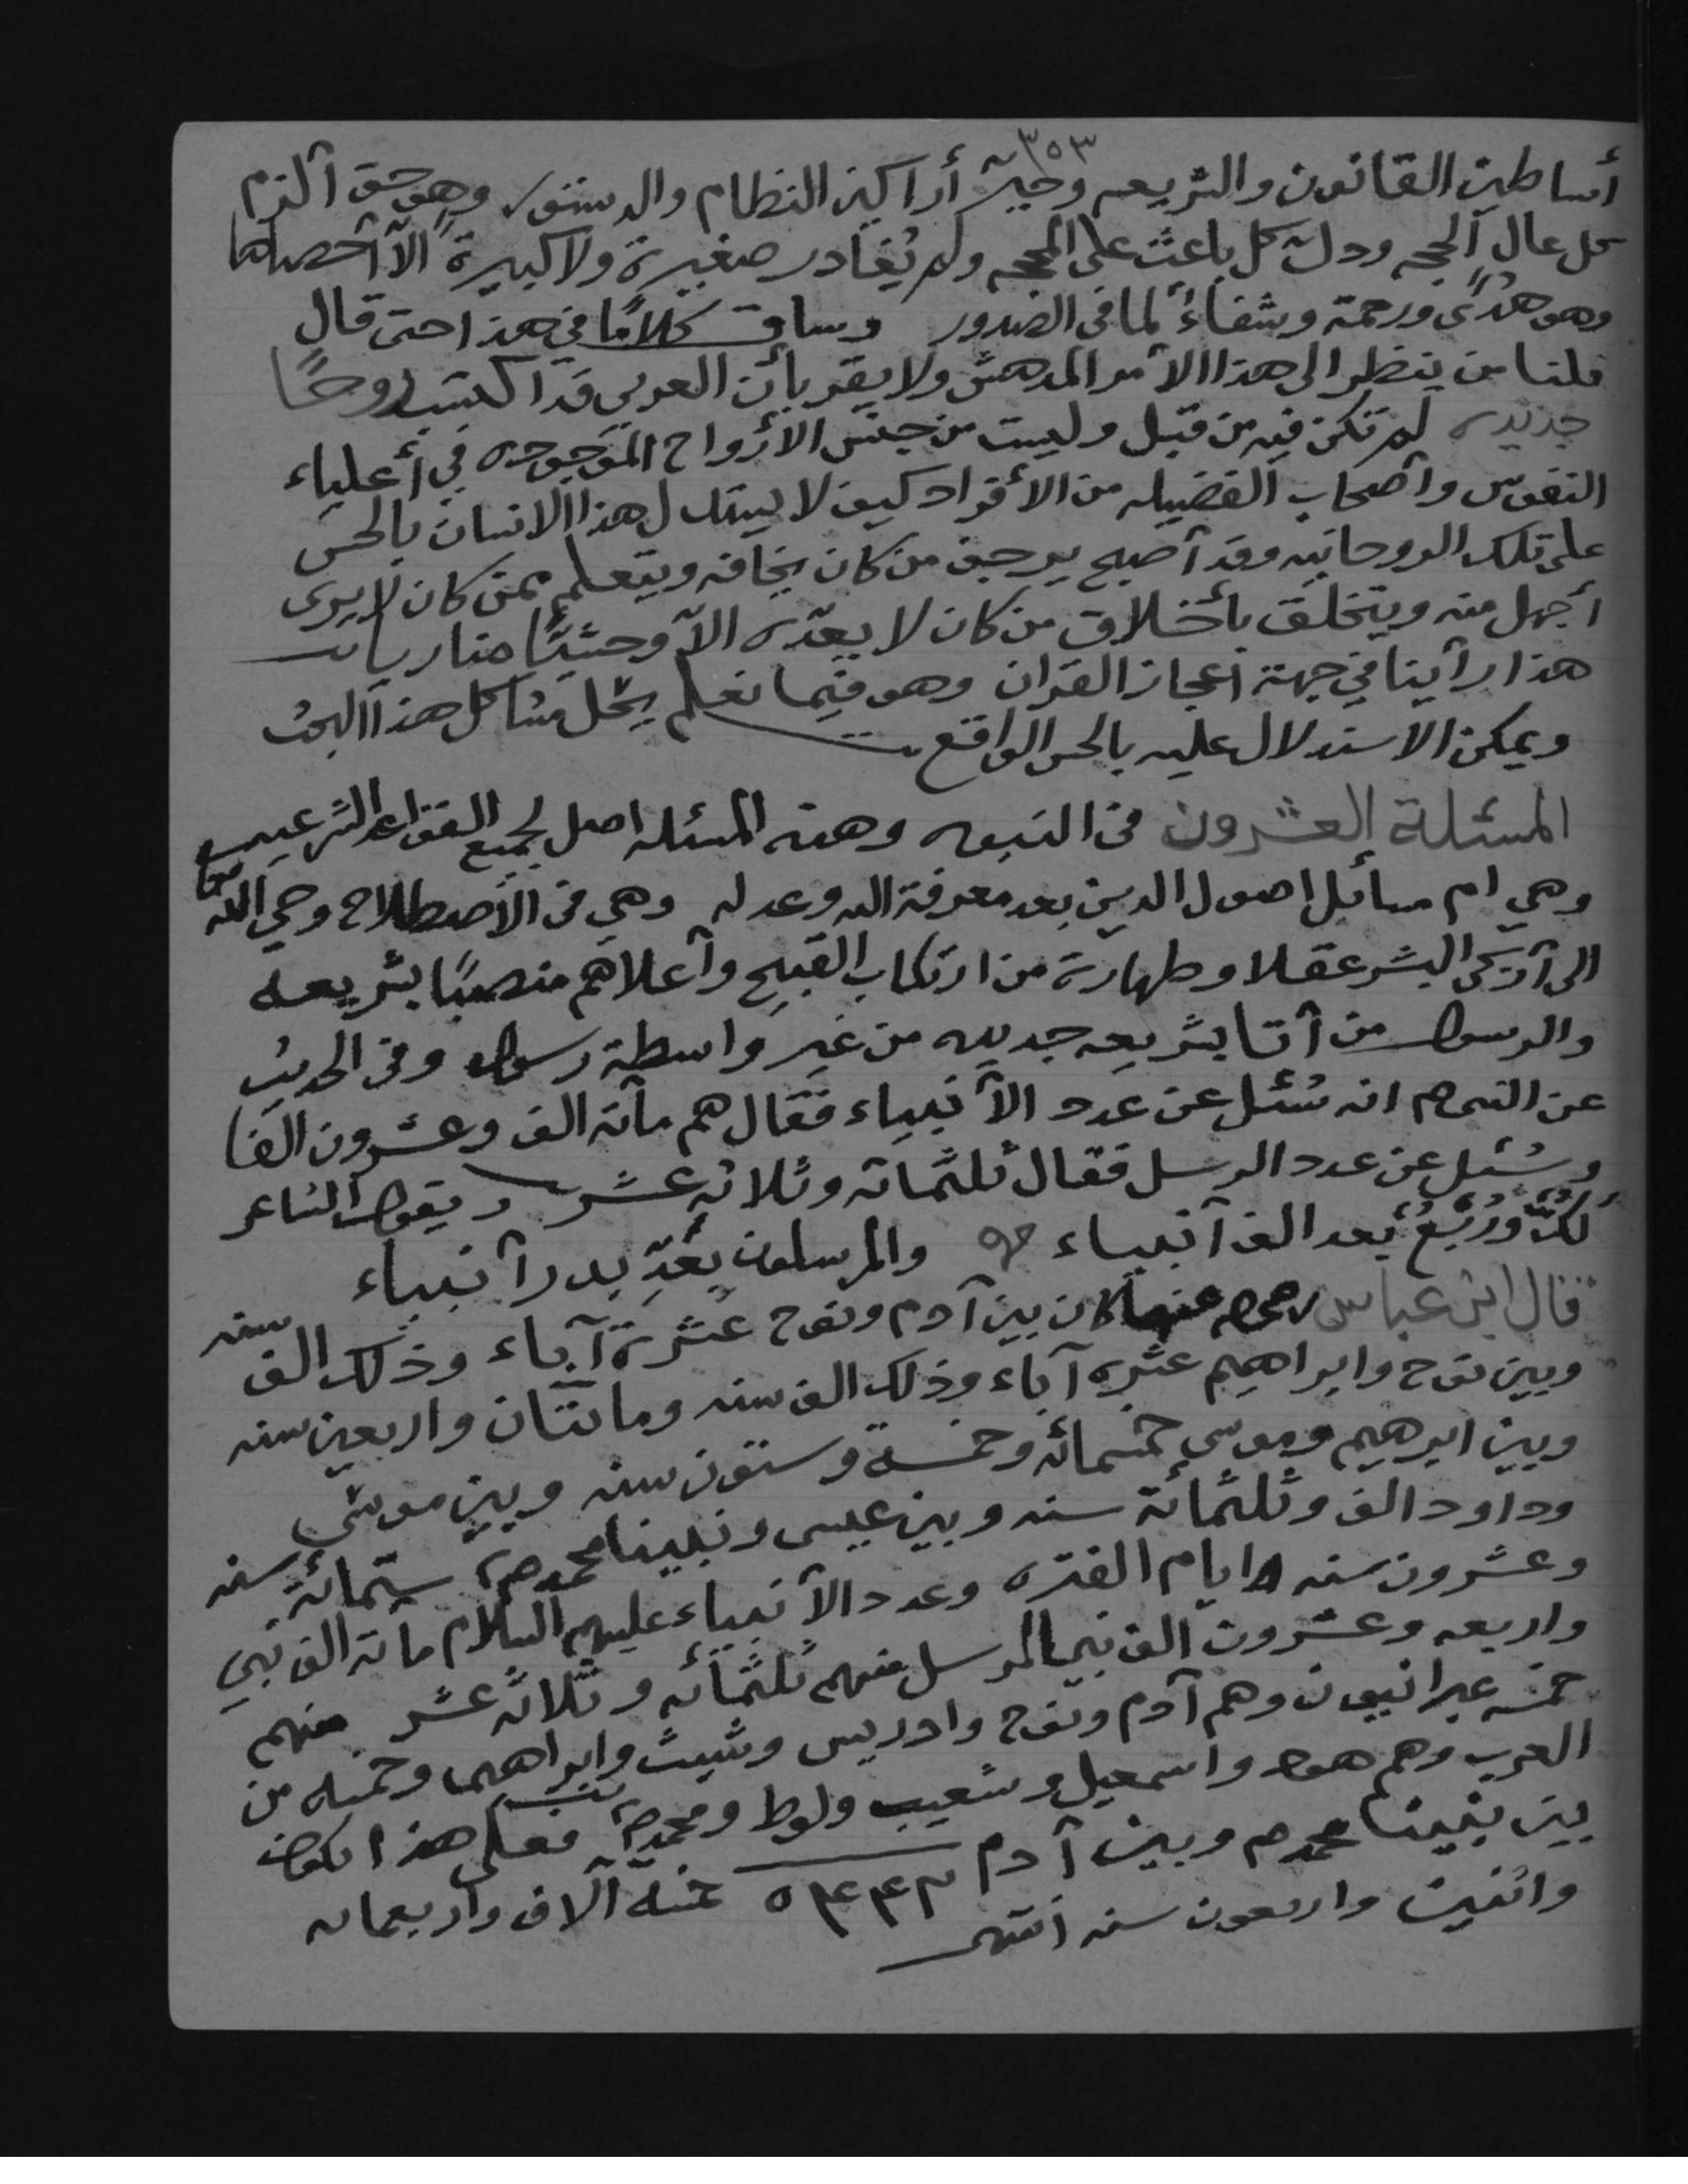 ٣٥٣
أساطين القانون والشريعه وحيّرَ أراكين النظام والدستور وهو حق ألزم
كل عال الحجه ودل كل باعث على المحجه ولم يُغادر صغيرة ولا كبيرة الّا أحصاها
وهو هدًى ورحمة وشفاءٌ لما في الصدور وساق كلامًا في هذا حتى قال
قلنا من ينظر الى هذا الأمر المدهش ولا يقر بأن العربي قد اكتسب روحًا
جديده لم تكن فيه من قبل وليست من جنس الأرواح الموجوده في أعلياء
النفوس وأصحاب الفضيله من الأفراد كيف لا يستدل هذا الانسان بالحس
على تلك الروحانيه وقد أصبح يرجف من كان يخافه ويتعلم ممن كان لا يرى
أجهل منه ويتخلق بأخلاق من كان لا يعدّه الّا وحشيًّا
هذا رأينا في جهة اعجاز القران وهو فيما نعلم يحل مشاكل هذا البحث
ويمكن الاستدلال عليه بالحس الواقع
المسئلة العشرون في النبوه وهذه المسئله اصل لجميع القواعد الشرعيه
وهي ام مسائل اصول الدين بعد معرفة الله وعدله وهي في الأصطلاح وحي الله
الى أزكى البشر عقلا وطهارة من ارتكاب القبيح وأعلاهم منصبًا بشريعه
والرسول من أتا بشريعه جديده من غير واسطة رسول وفي الحديث
عن النبي صم انه سُئل عن عدد الأنبياء فقال هم مأئة الف وعشرون الفا
وسُئل عن عدد الرسل فقال ثلثمائه وثلاثه عشر ويقول الشاعر
بعد الف أنبياء والمرسلون بعدّ بدر أنبياء
قال ابن عباس رضي الله عنهما كان بين آدم ونوح عشرة آباء وذلك الف سنه
وبين نوح وابراهيم عشره آباء وذلك الف سنه ومائتان واربعين سنه
وبين ابرهيم وموسي خمسمائه وخمسة وستون سنه وبين موسى
وداود الف وثلثمائة سنه وبين عيسى ونبينا محمد صم ستمائة سنه
وعشرون سنه ايام الفتره وعدد الأنبياء عليهم السلام مائة الف نبي
واربعه وعشرون الف نبي المرسل منهم ثلثمائه وثلاثه عشر منهم
خمسه عبرانيون وهم آدم ونوح وادريس وشيث وابراهيم وخمسه من
العرب وهم هود واسمعيل وشعيب ولوط ومحمد صم فعلى هذا يكون
بين نبينا محمد صم وبين آدم ٥٤٤٢ خمسة آلاف واربعمائه
واثنين واربعون سنه انتهى